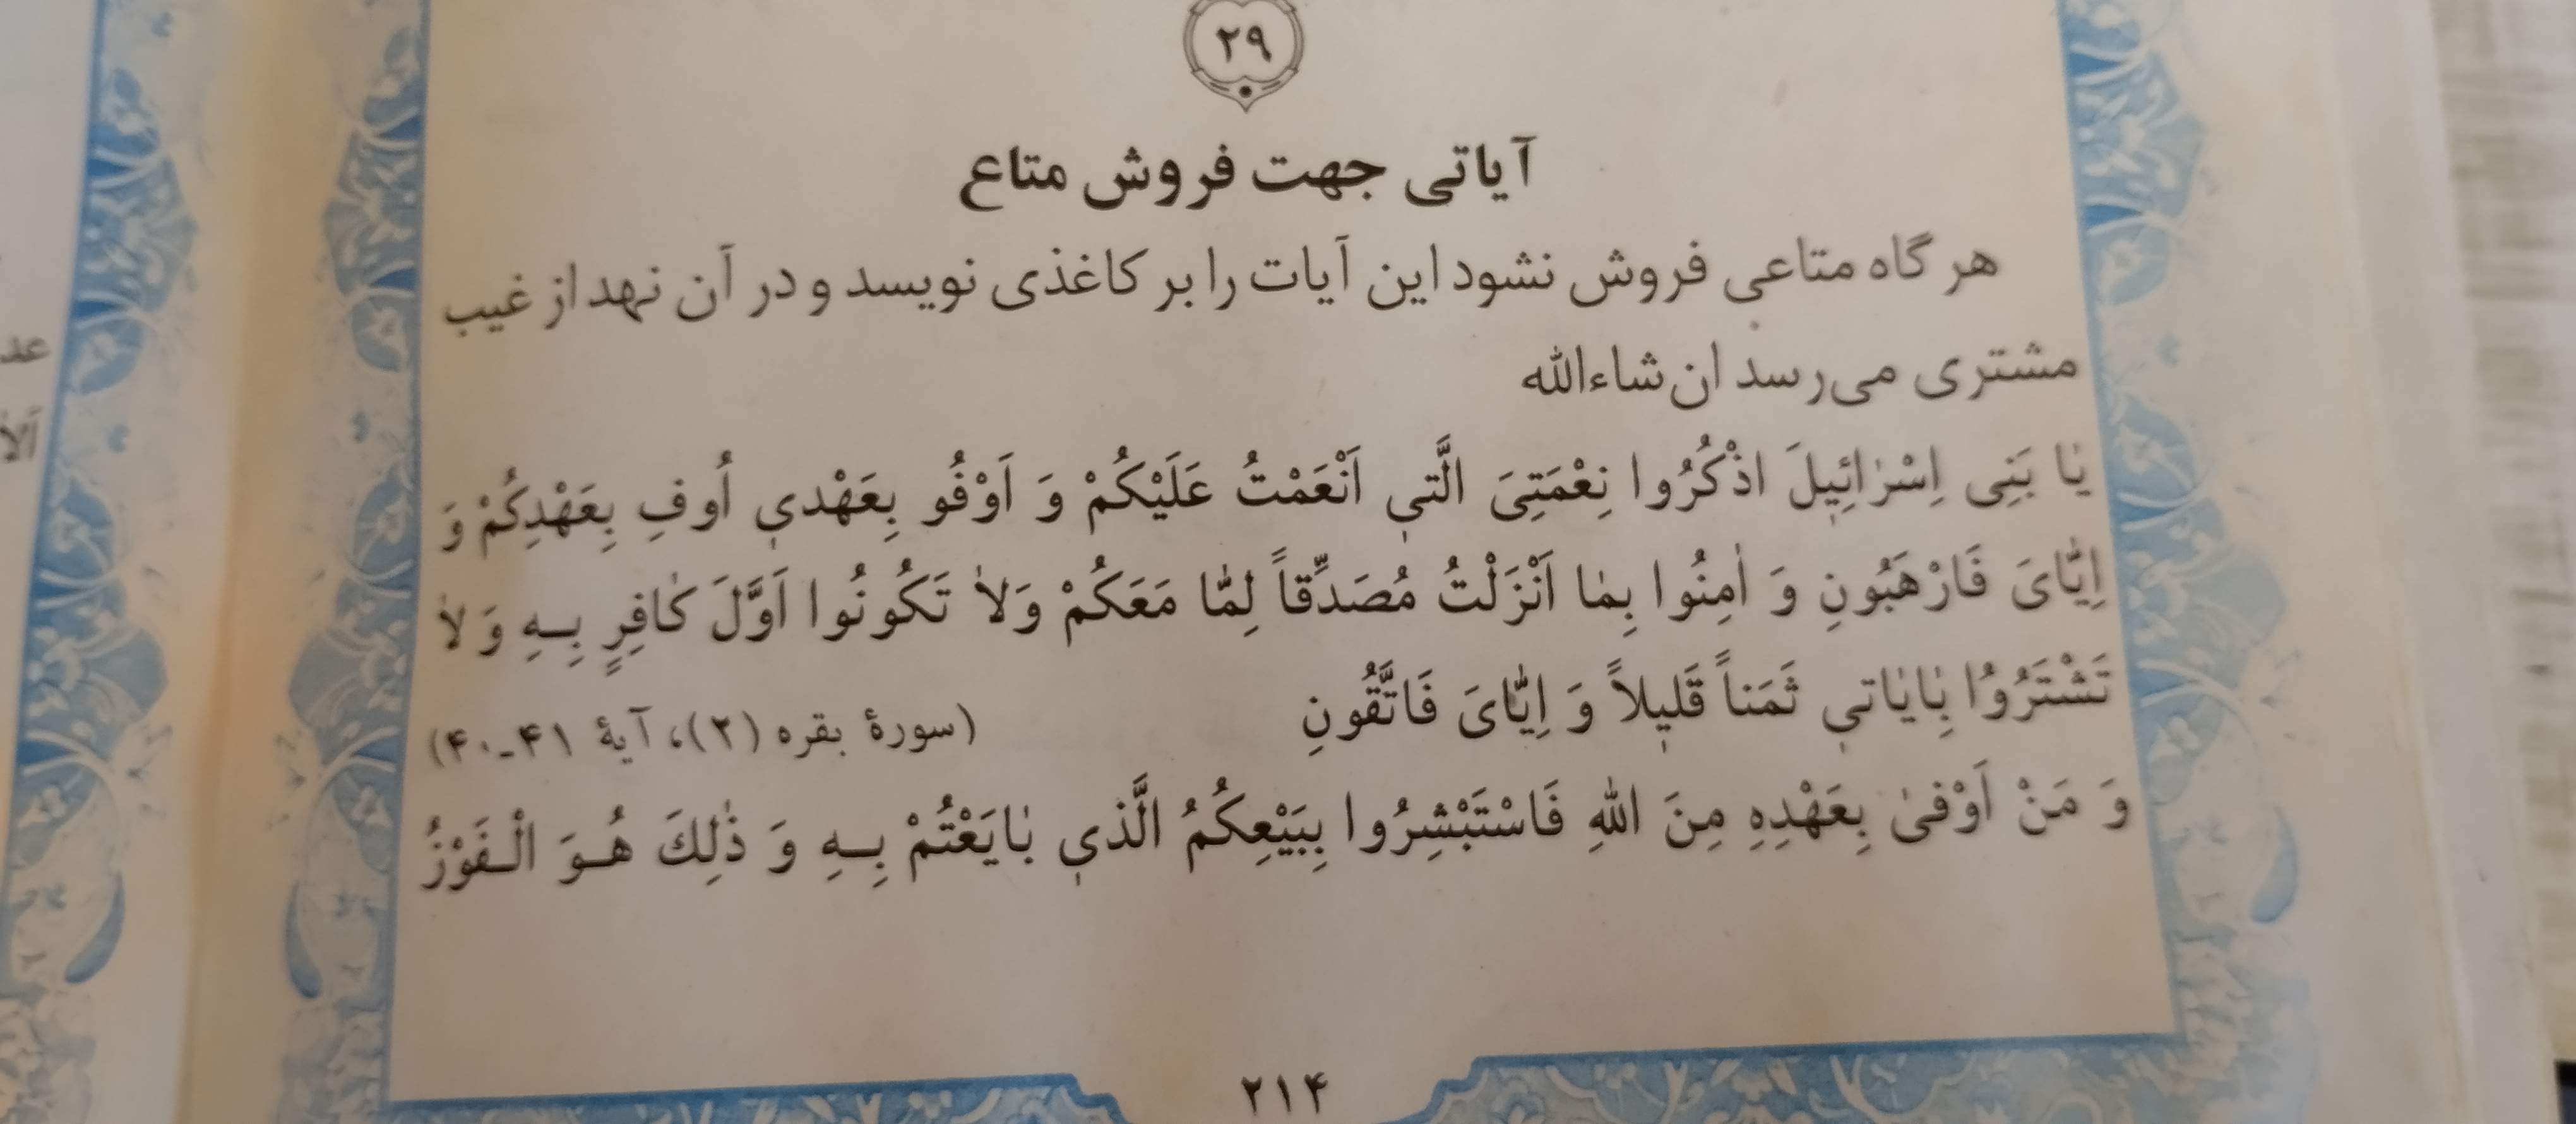 ۲۹
آیاتی جهت فروش متاع
هر گاه متاعی فروش نشود این آیات را بر کاغذی نویسد و در آن نهد از غیب
مشتری می‌رسد ان‌شاءالله
یٰا بَنِی اِسْرٰائِیلَ اذْکُرُوا نِعْمَتِیَ الَّتی اَنْعَمْتُ عَلَیْکُمْ وَ اَوْفُو بِعَهْدی اُوفِ بِعَهْدِکُمْ وَ
اِیّٰایَ فَارْهَبُونِ وَ اٰمِنُوا بِمٰا اَنْزَلْتُ مُصَدِّقاً لِمّٰا مَعَکُمْ وَلاٰ تَکُونُوا اَوَّلَ کٰافِرٍ بِـهِ وَ لاٰ
تَشْتَرُوُا بِٰایٰاتی ثَمَناً قَلیلاً وَ اِیّٰایَ فَاتَّقُونِ (سورهٔ بقره (۲)، آیهٔ ۴۱ـ۴۰)
وَ مَنْ اَوْفیٰ بِعَهْدِهِ مِنَ اللهِ فَاسْتَبْشِرُوا بِبَیْعِکُمُ الَّذی بٰایَعْتُمْ بِـهِ وَ ذٰلِکَ هُـوَ الْـفَوْزُ
۲۱۴
عد